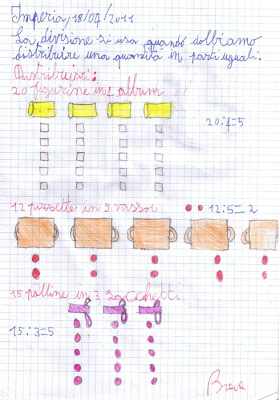 Imperia, 18/04/2011
La divisione si usa quando dobbiamo
distribuire una quantità in parti uguali.
Distribuisci:
20 figurine in 4 album
20:4=5
12 posette in 5 vassoi
12:5=2
15 palline in 3 sacchetti
15:3=5
Brava